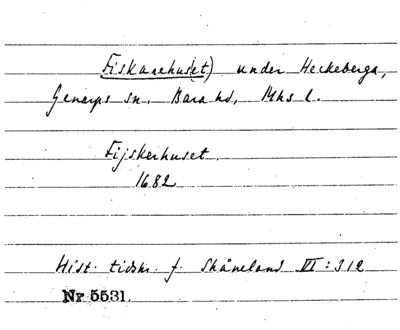 Fiskarehuset) under Heckeberga,
Genarps sn. Bara hd, Mhs l.
Fijskerhuset
1682
Hist. tidskr. f. Skåneland VI:312
Nr 5531.